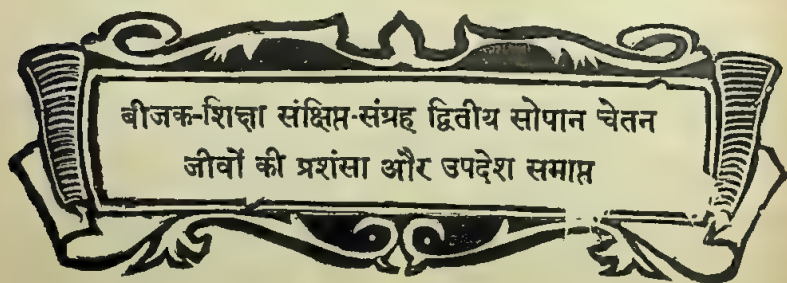 बीजक-शिक्षा संक्षिप्त-संग्रह द्वितीय सोपान चेतन
जीवों की प्रशंसा और उपदेश समाप्त